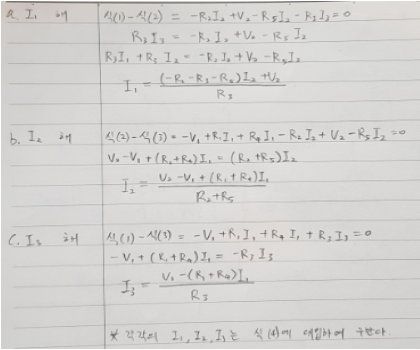 a. I₁ 해 식(1)-식(2) = -R₂I₂+V₂-R₅I₂-R₃I₃=0
R₃I₃ = -R₂I₂+V₂-R₅I₂
R₃I₁+R₃I₂ = -R₂I₂+V₂-R₅I₂
I₁ = (-R₂-R₃-R₅)I₂+V₂ / R₃
b. I₂ 해 식(2)-식(3) = -V₁+R₁I₁+R₄I₁-R₂I₂+V₂-R₅I₂=0
V₂-V₁+(R₁+R₄)I₁ = (R₂+R₅)I₂
I₂ = V₂-V₁+(R₁+R₄)I₁ / R₂+R₅
C. I₃ 해 식(1)-식(3) = -V₁+R₁I₁+R₄I₁+R₃I₃=0
-V₁+(R₁+R₄)I₁ = -R₃I₃
I₃ = V₁-(R₁+R₄)I₁ / R₃
* 각각의 I₁, I₂, I₃는 식(4)에 대입하여 구한다.